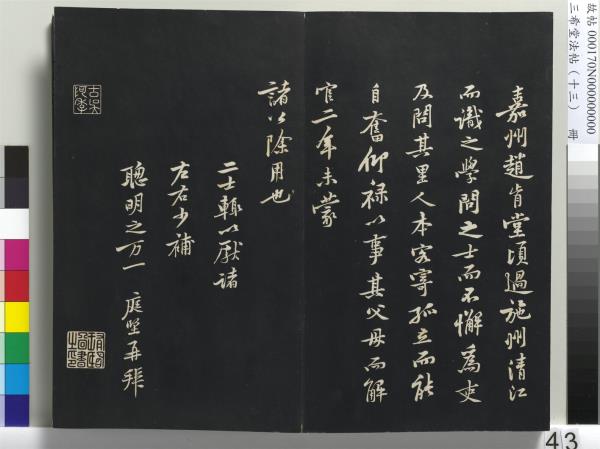 嘉州趙肯堂頃過施州清江
而識之學問之士而不懈為吏
及問其里人本客寄孤立而能
自奮仰祿以事其父母而解
官二年未蒙
諸公除用也
二士輒以厭諸
左右少補
聰明之万一 庭堅再拜
故帖 000170N000000000
三希堂法帖(十三) 冊
43